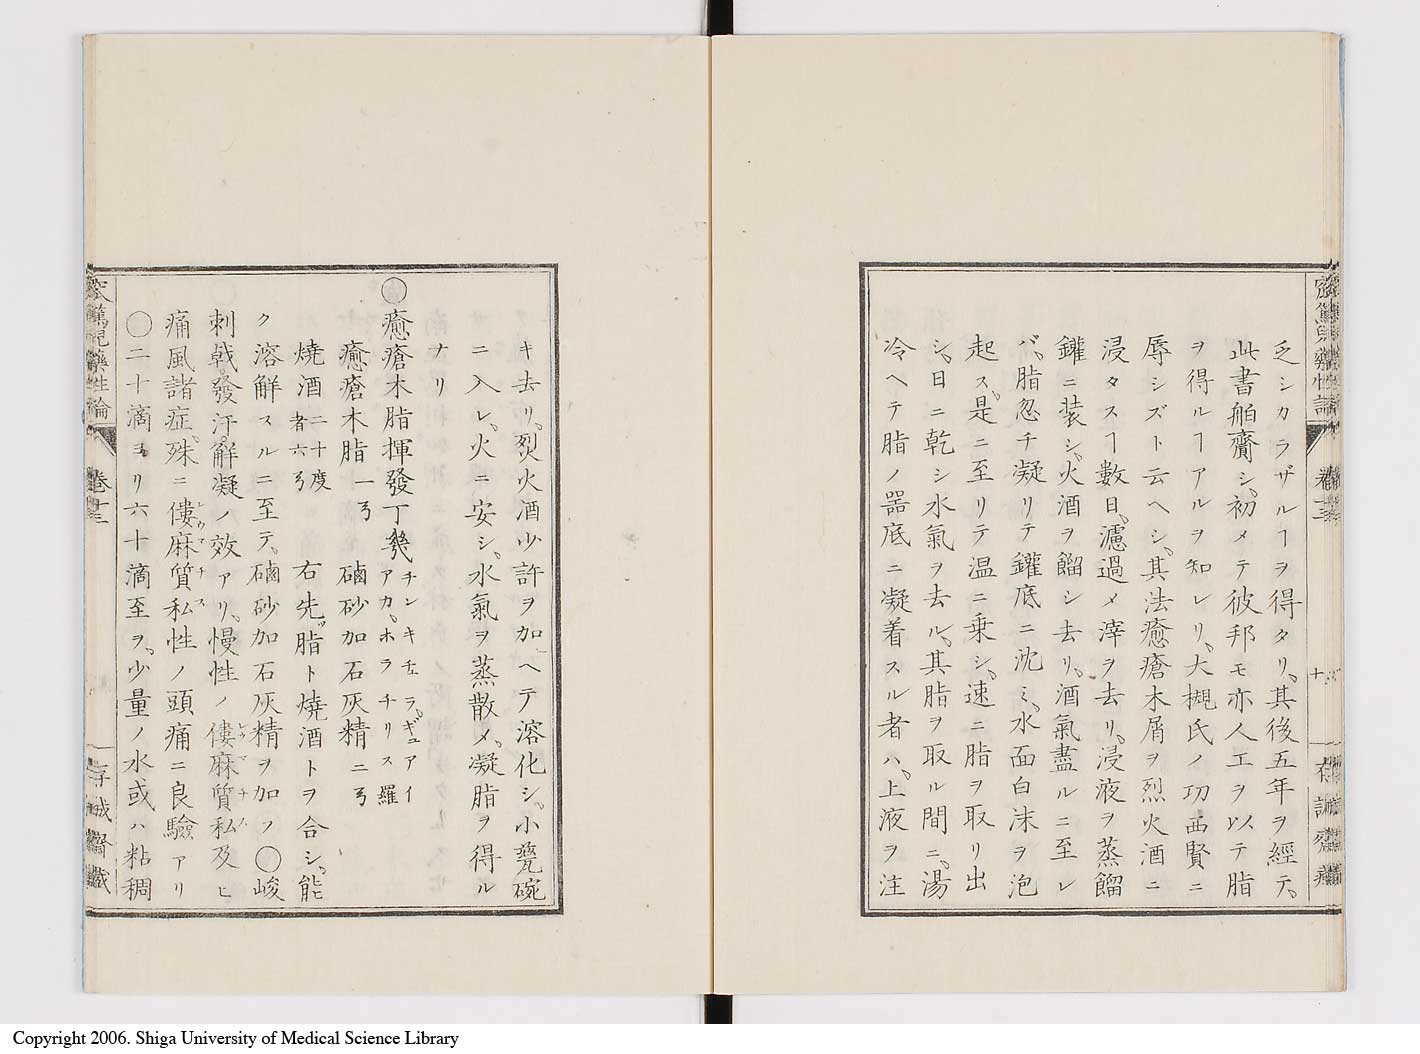 乏シカラザルヿヲ得タリ、其後五年ヲ經テ、
此書舶齎シ、初メテ彼邦モ亦人工ヲ以テ脂
ヲ得ルヿアルヲ知レリ、大槻氏ノ功西賢ニ
辱シズト云ヘシ、其法癒瘡木屑ヲ烈火酒ニ
浸タスヿ數日、濾過メ滓ヲ去リ、浸液ヲ蒸餾
鑵ニ装シ、火酒ヲ餾シ去リ、酒氣盡ルニ至レ
バ、脂忽チ凝リテ鑵底ニ沈ミ、水面白沫ヲ泡
起ス、是ニ至リテ温ニ乗シ、速ニ脂ヲ取リ出
シ、日ニ乾シ水氣ヲ去ル、其脂ヲ取ル間ニ、湯
冷ヘテ脂ノ器底ニ凝着スル者ハ、上液ヲ注
キ去リ、烈火酒少許ヲ加ヘテ溶化シ、小甆碗
ニ入レ、火ニ安シ、水氣ヲ蒸散メ、凝脂ヲ得ル
ナリ
◯癒瘡木脂揮發丁幾 チンキチュラ、ギュアイアカ、ホラチリス 羅
癒瘡木脂 一弓 磠砂加石灰精 二弓
燒酒 二十度者六弓 右先ッ脂ト燒酒トヲ合シ、能
ク溶解スルニ至テ、磠砂加石灰精ヲ加フ◯峻
刺戟發汗、解凝ノ效アリ、慢性ノ僂麻質私及ヒ
痛風諸症、殊ニ僂麻質私性ノ頭痛ニ良驗アリ
◯二十滴ヨリ六十滴至ヲ、少量ノ水或ハ粘稠
窊篤兒藥性論
卷十三
存誠齋藏
Copyright 2006. Shiga University of Medical Science Library